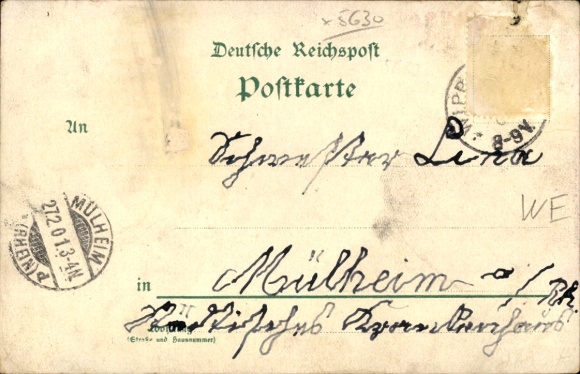 x 5630
Deutsche Reichspost
Postkarte
8-9V.
An
Schwester Lina
WE
MÜLHEIM
27.2.01.3-4N
(RHEIN)
in Mülheim a/Rh.
Städtisches Krankenhaus
Wohnung
(Straße und Hausnummer)